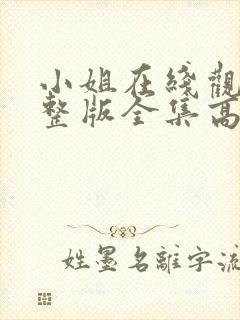 小姐在綫觀
整版全集高
姓墨名離字流